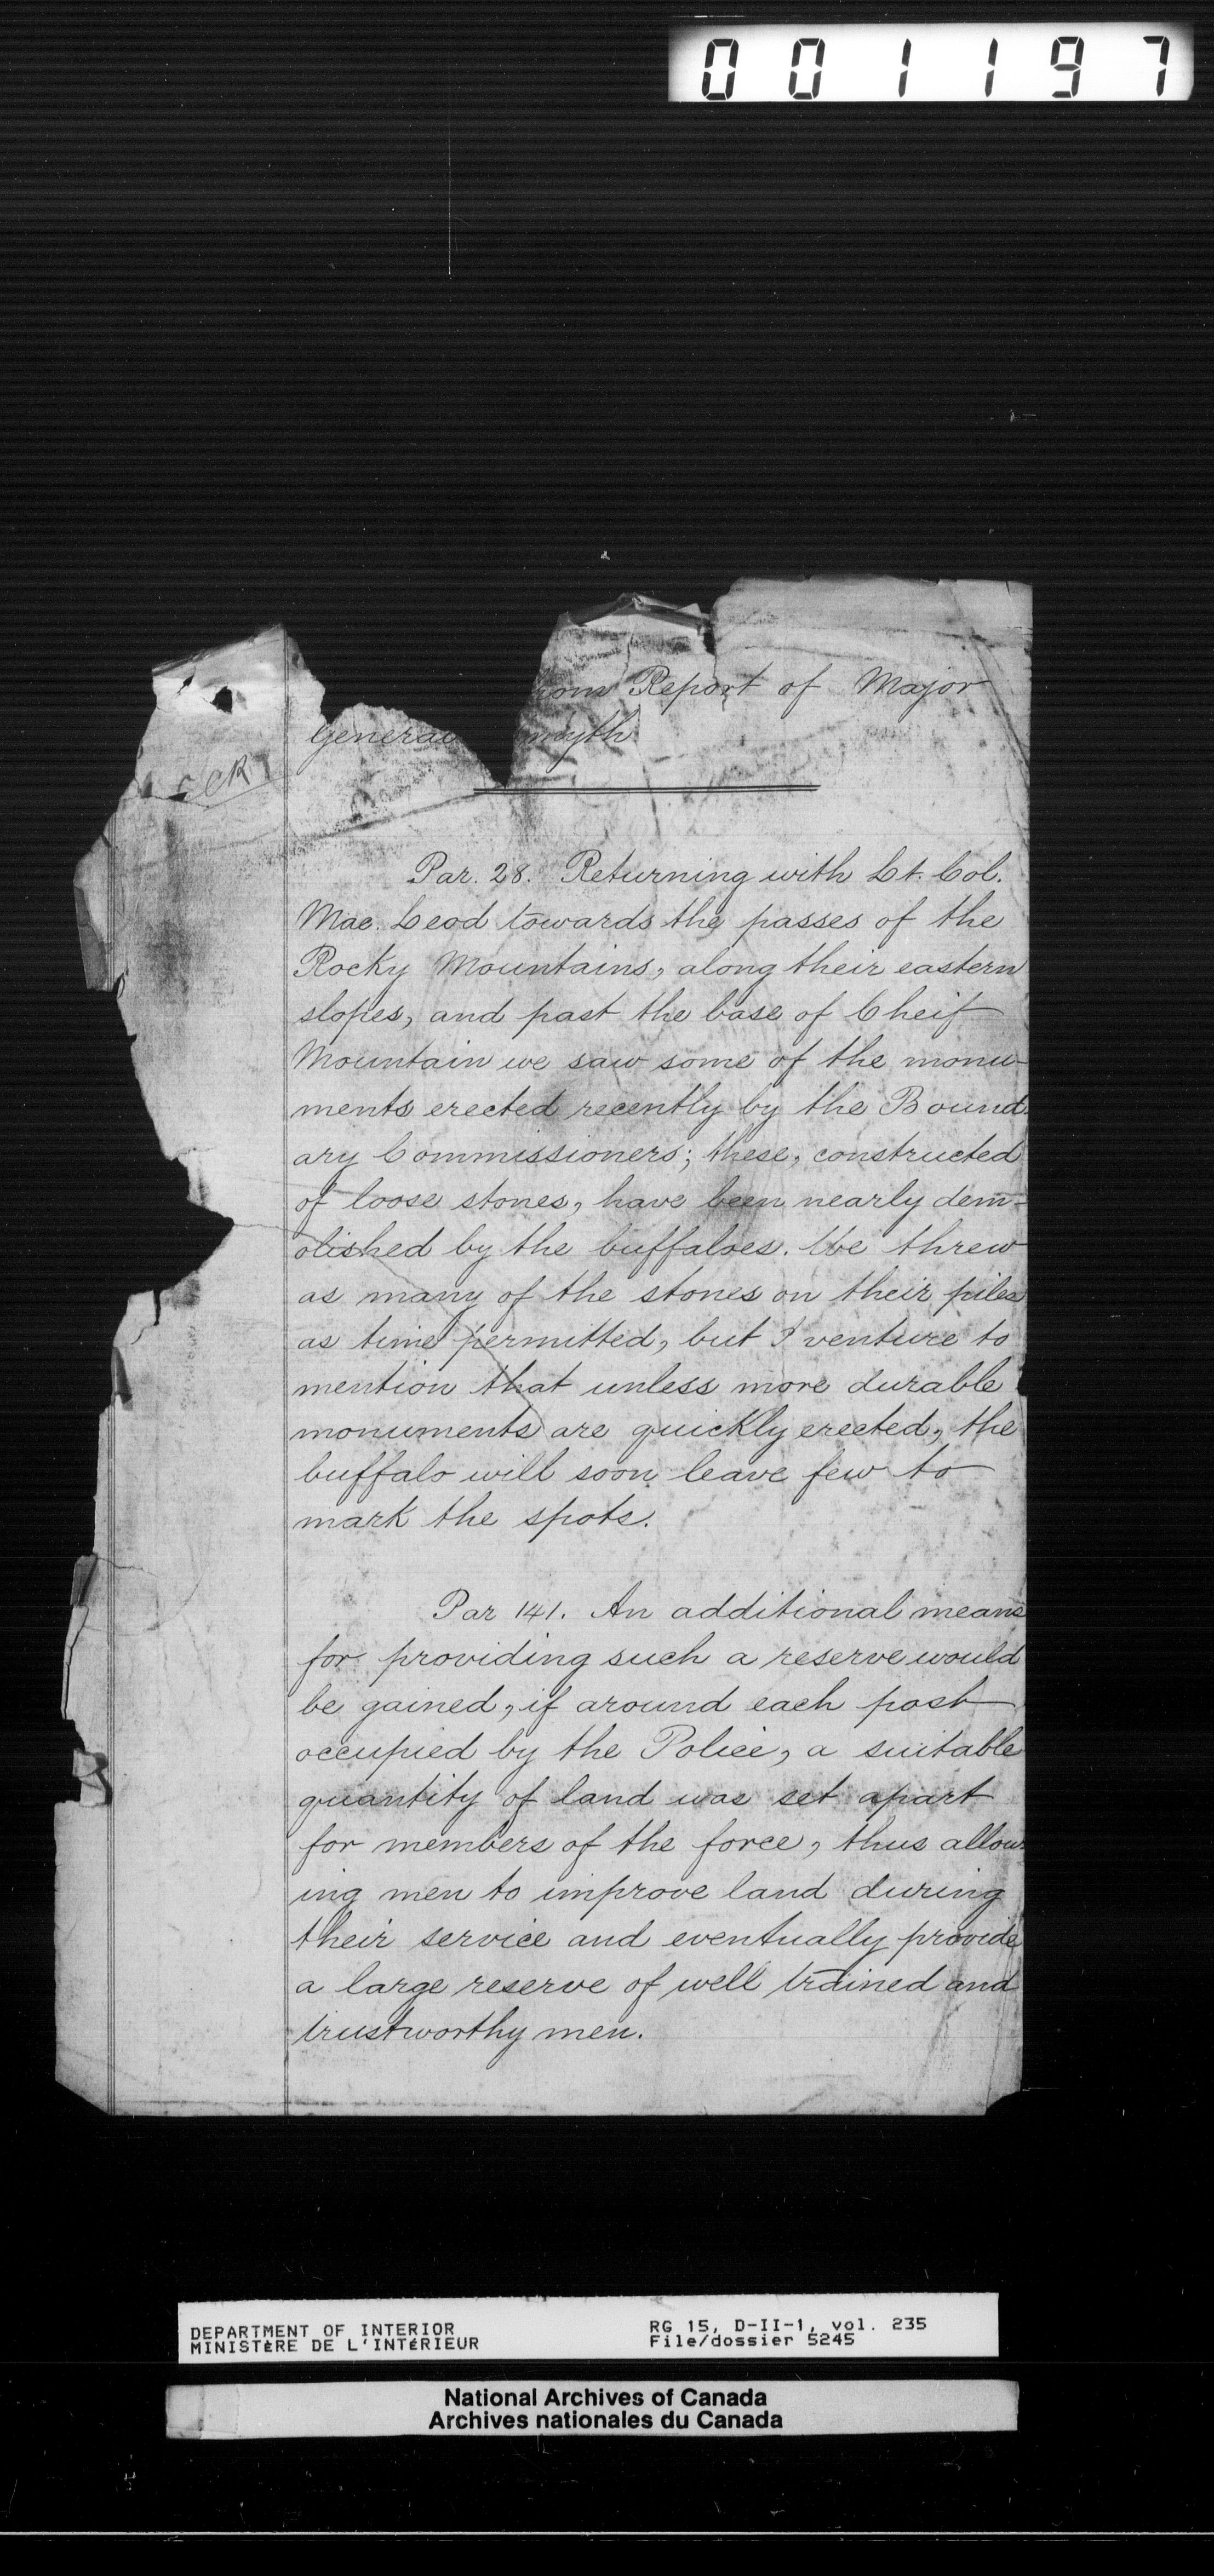 001197
Report of Major
General
Par. 28. Returning with Lt. Col.
Mac. Leod towards the passes of the
Rocky Mountains, along their eastern
slopes, and past the base of Cheif
Mountain we saw some of the monu-
ments erected recently by the Bound-
ary Commissioners; these, constructed
of loose stones, have been nearly dem-
olished by the buffaloes. We threw
as many of the stones on their piles
as time permitted, but I venture to
mention that unless more durable
monuments are quickly erected, the
buffalo will soon leave few to
mark the spots.
Par 141. An additional means
for providing such a reserve would
be gained, if around each post
occupied by the Police, a suitable
quantity of land was set apart
for members of the force, thus allow-
ing men to improve land during
their service and eventually provide
a large reserve of well trained and
trustworthy men.
DEPARTMENT OF INTERIOR RG 15, D-II-1, vol. 235
MINISTÈRE DE L'INTÉRIEUR File/dossier 5245
National Archives of Canada
Archives nationales du Canada